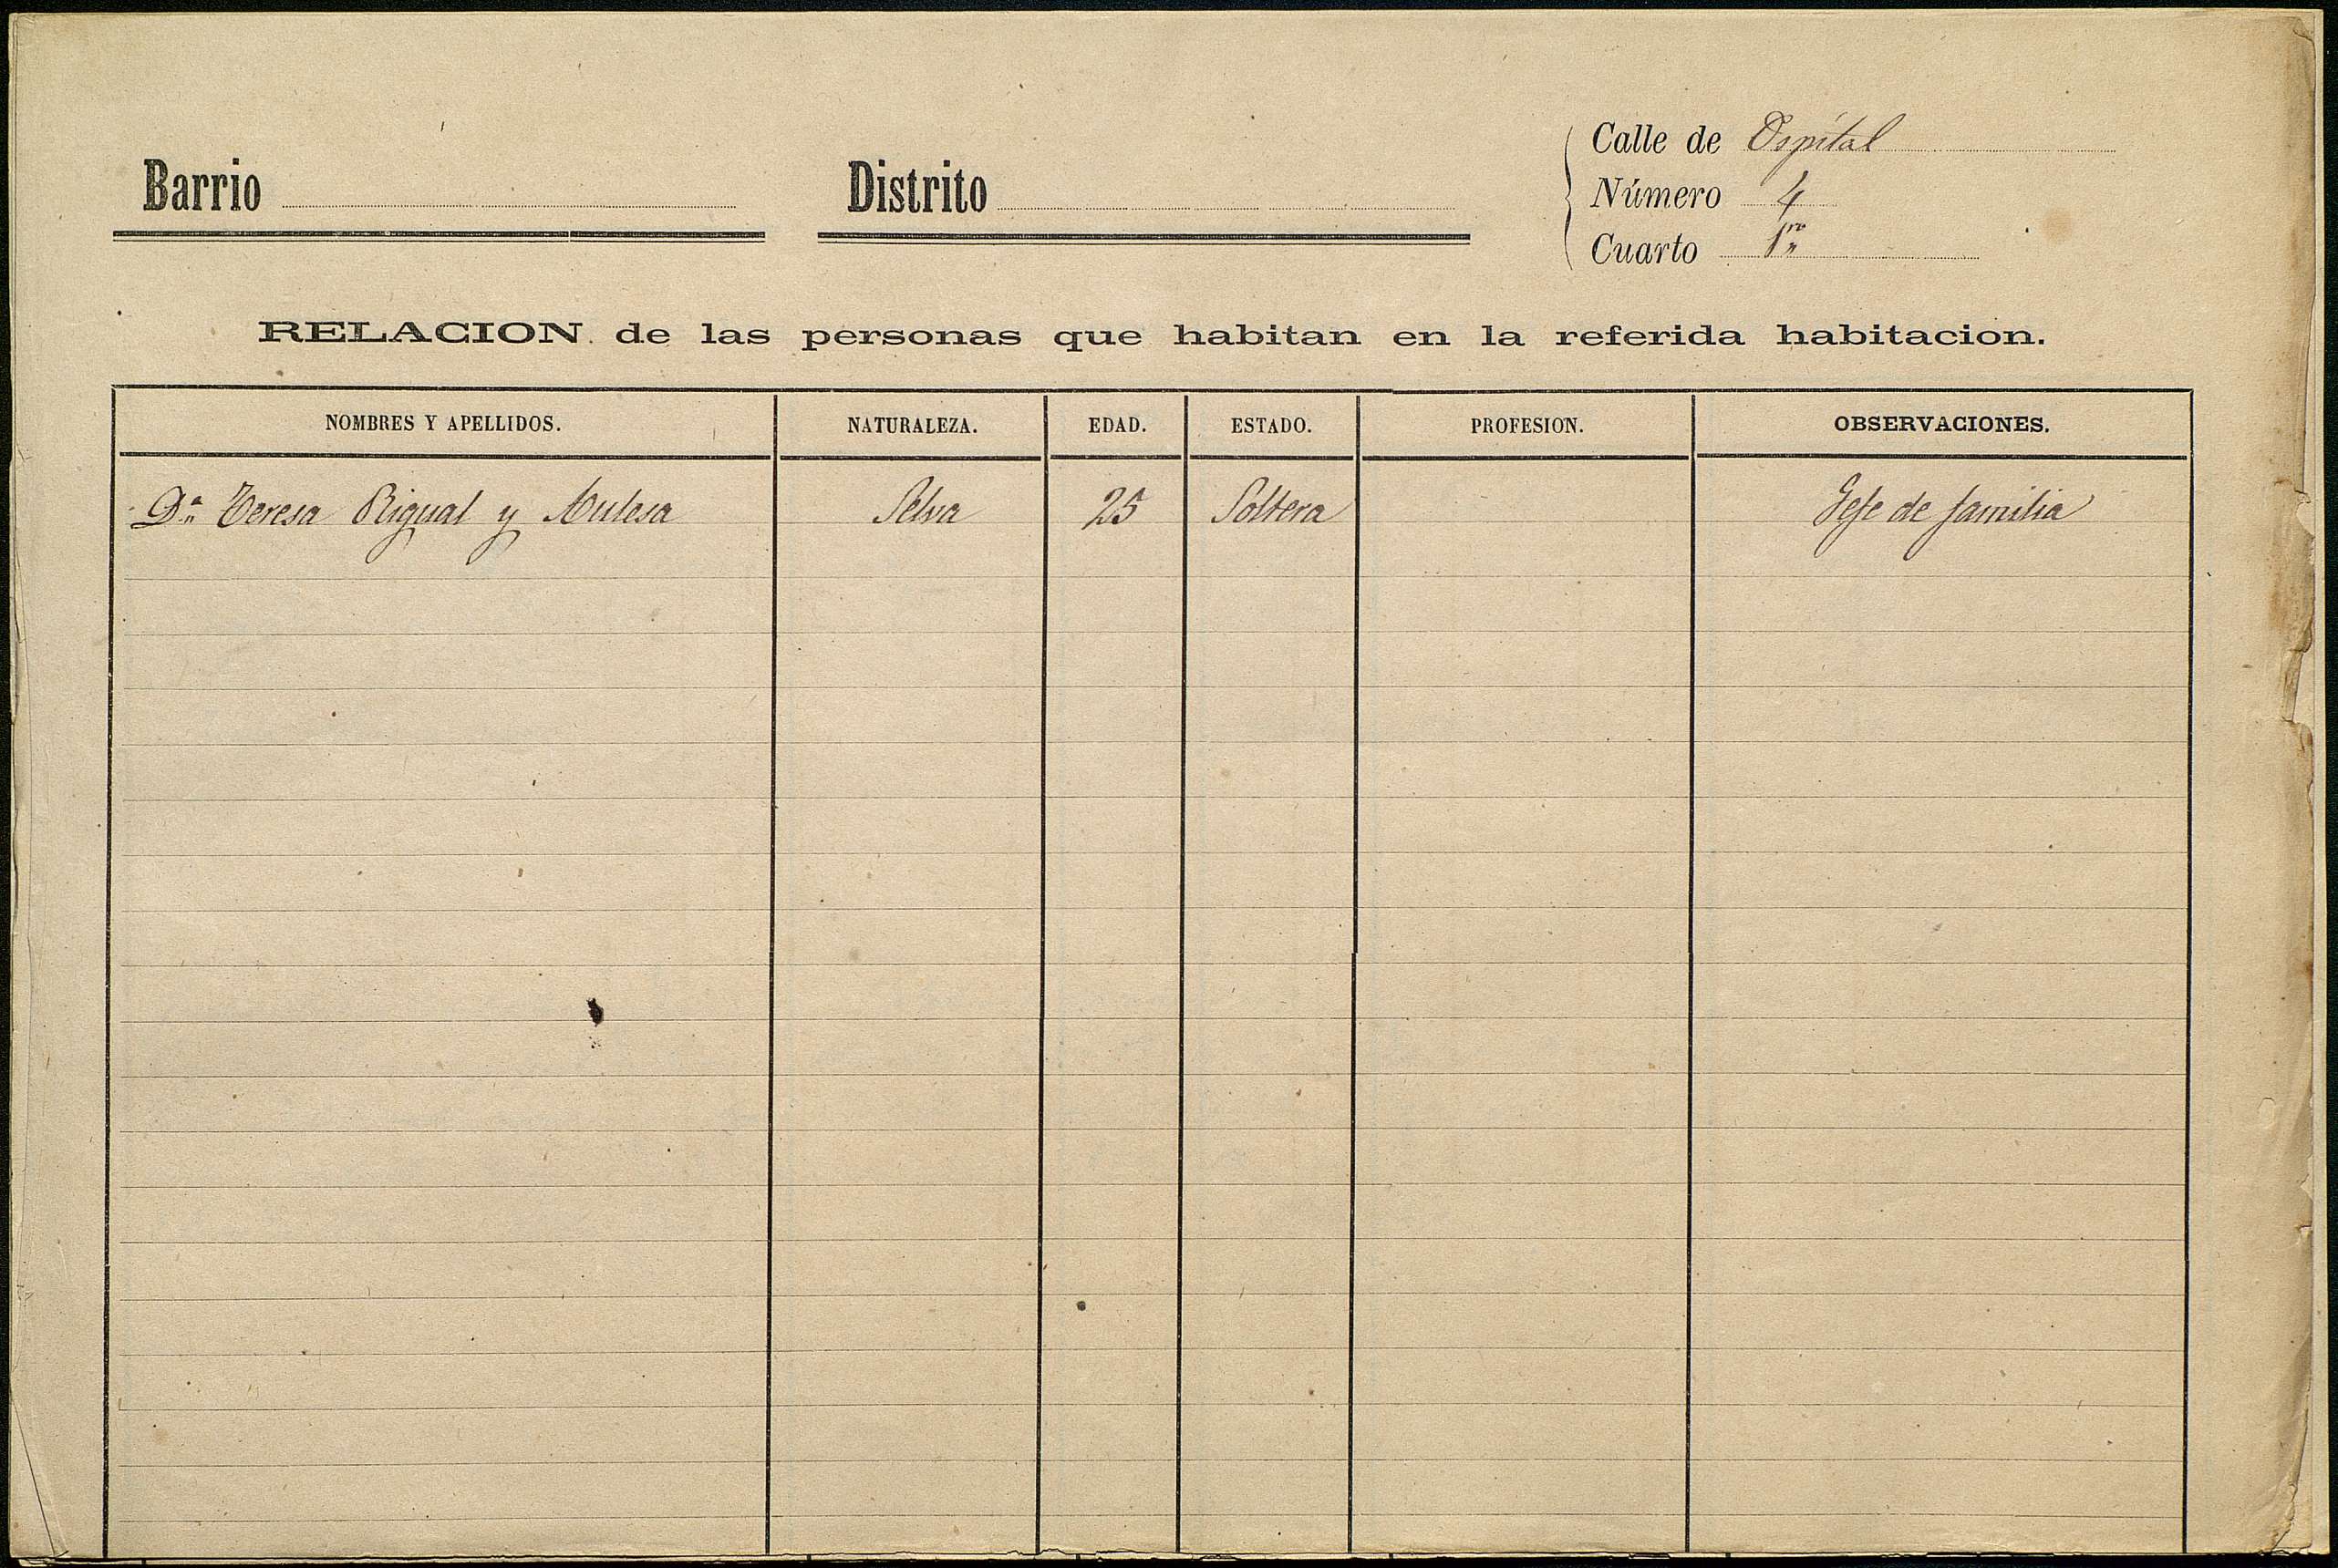 Barrio
Distrito
Calle de Ospital
Número 4
Cuarto 1ro
RELACION de las personas que habitan en la referida habitacion.
NOMBRES Y APELLIDOS. NATURALEZA. EDAD. ESTADO. PROFESION. OBSERVACIONES.
Da Teresa Rigual y Aulesa Selva 25 Soltera Gefe de familia